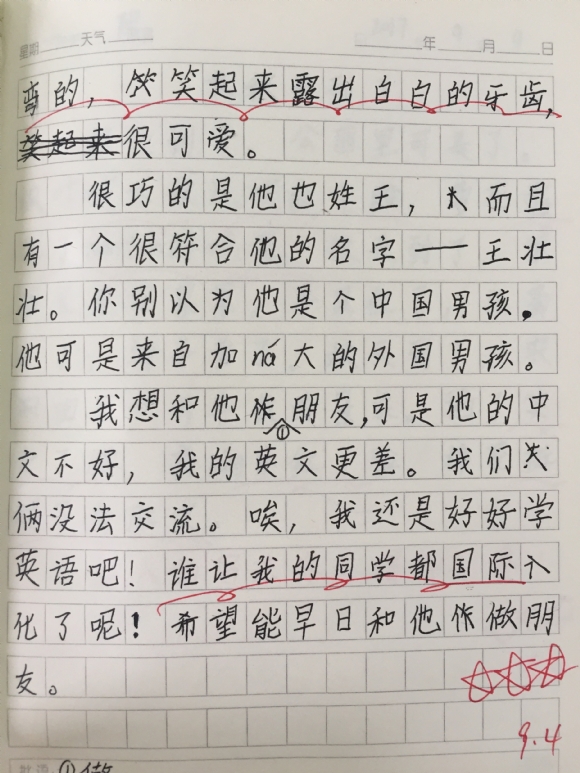 星期 天气 年 月 日
弯的，笑起来露出白白的牙齿，
笑起来很可爱。
很巧的是他也姓王，而且
有一个很符合他的名字——王壮
壮。你别以为他是个中国男孩，
他可是来自加ná大的外国男孩。
我想和他作朋友，可是他的中
①
文不好，我的英文更差。我们
俩没法交流。唉，我还是好好学
英语吧！谁让我的同学都国际
化了呢！希望能早日和他做朋
友。
9.4
①做